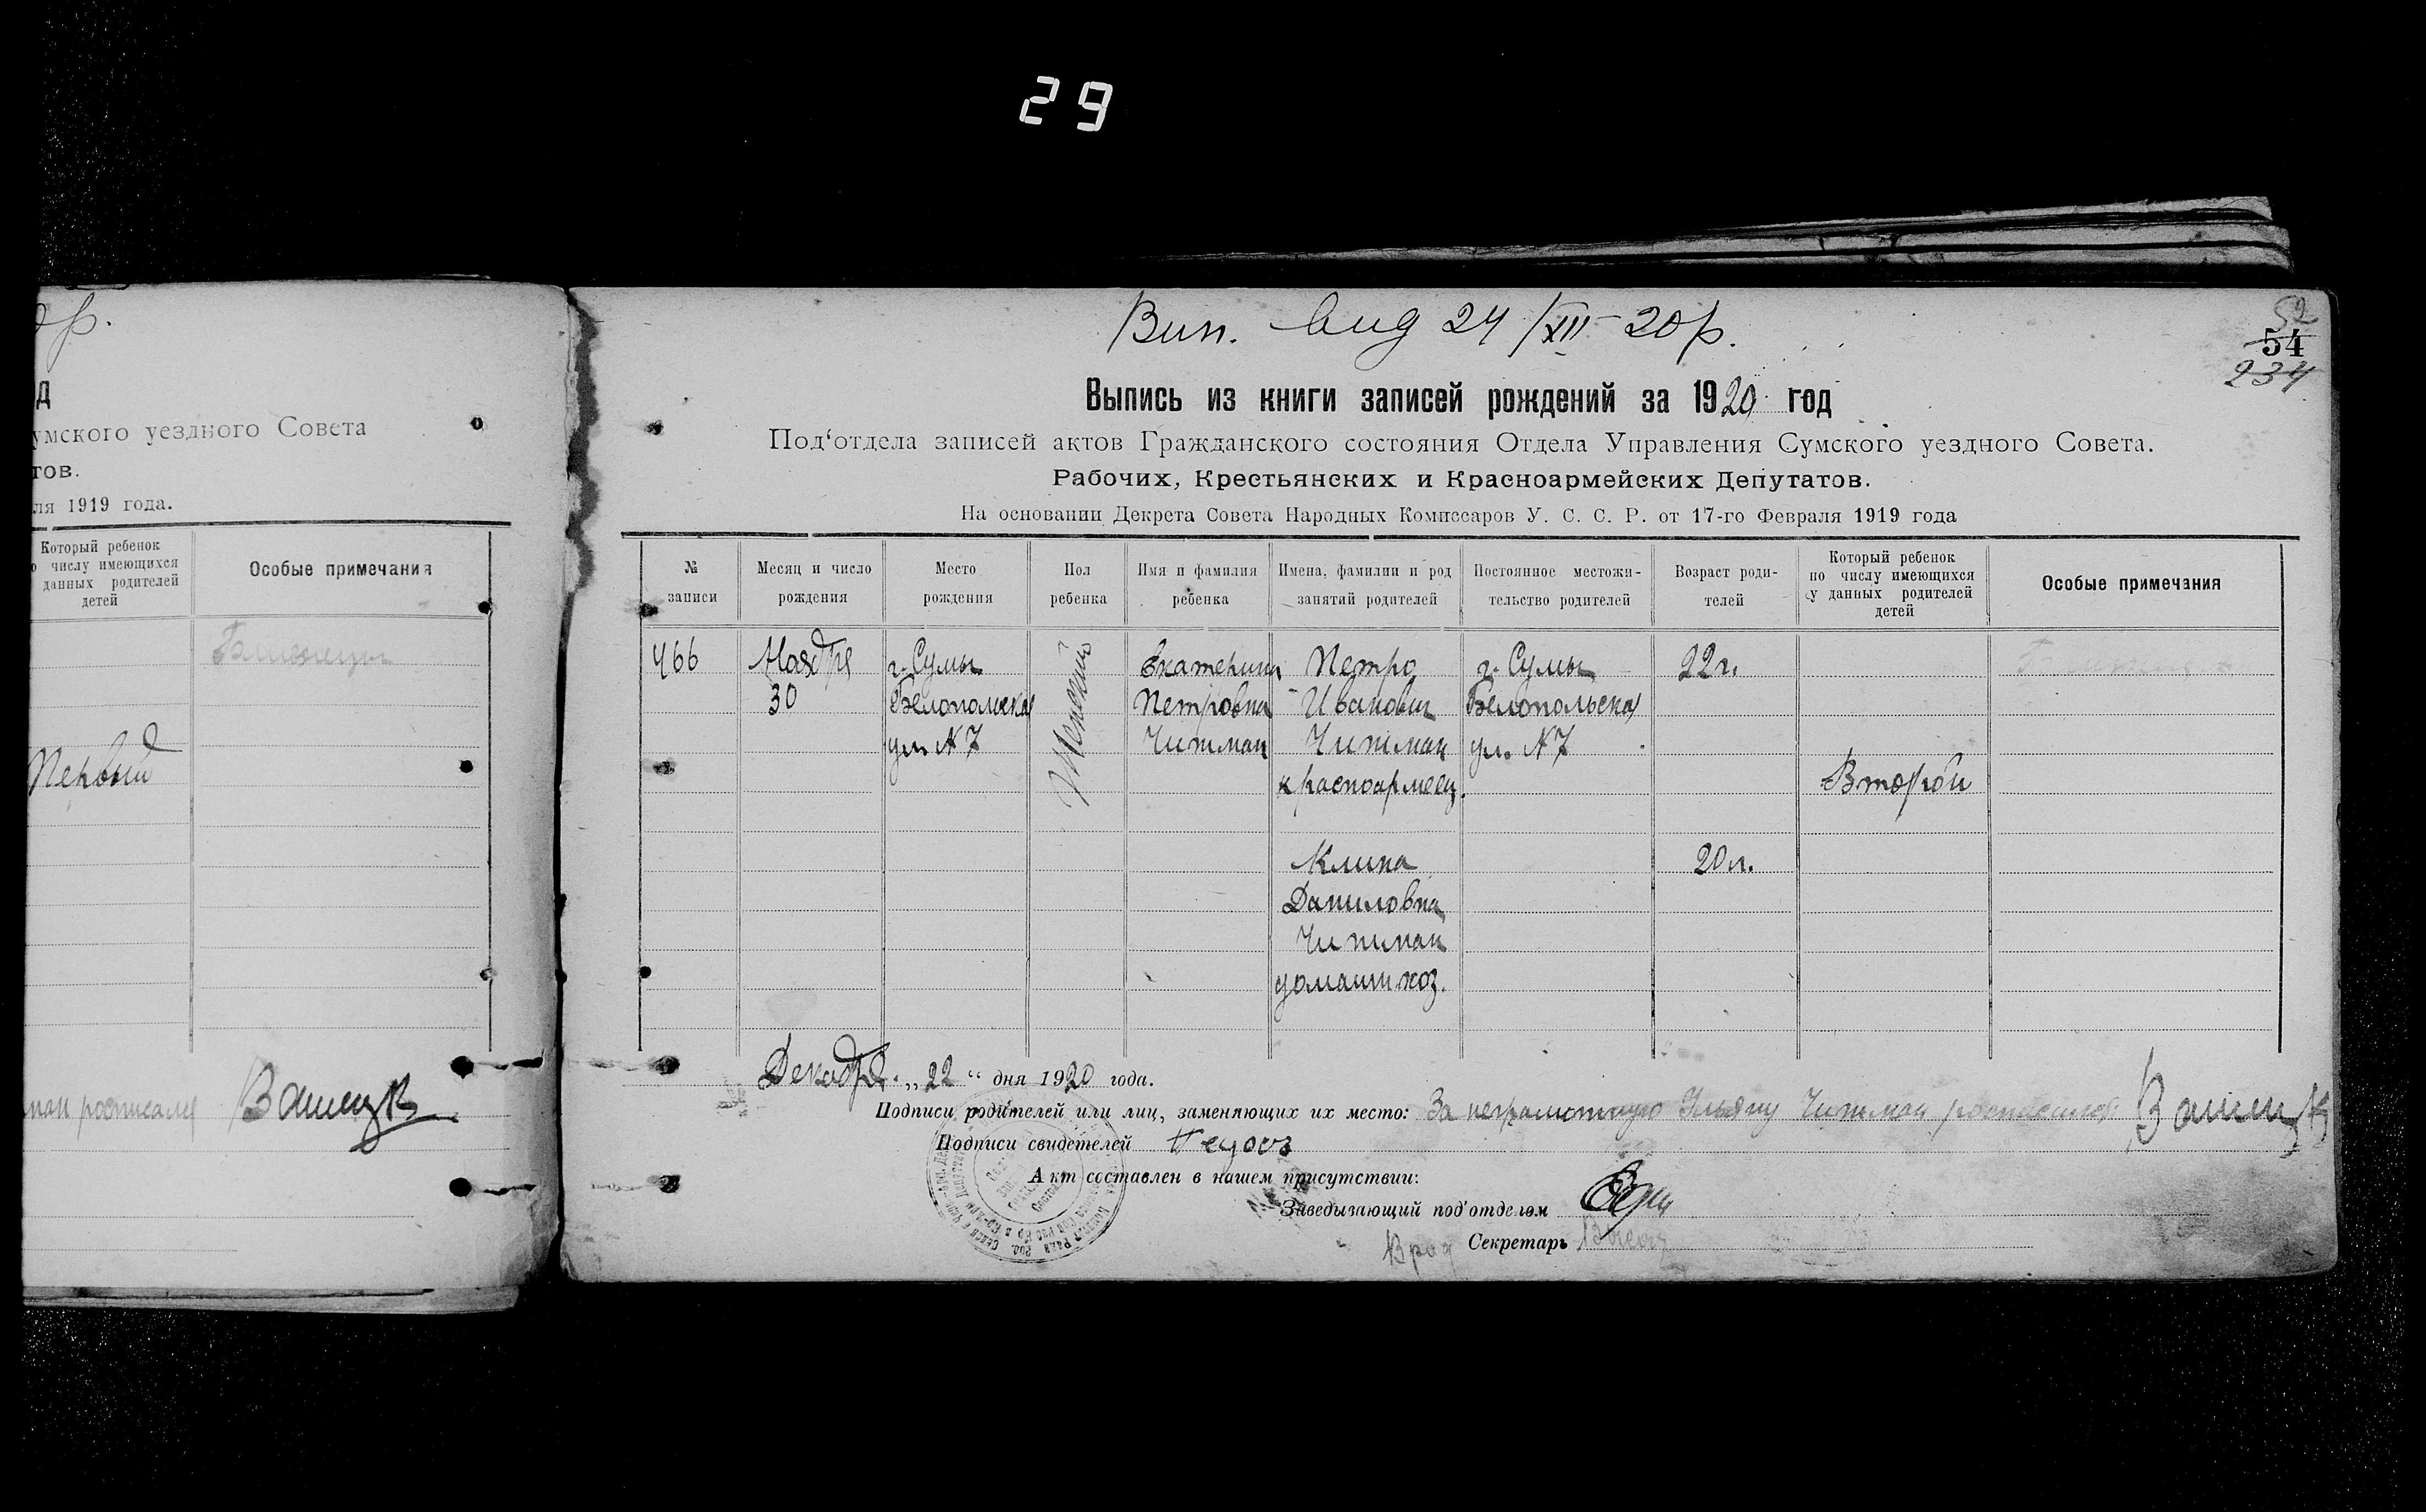 29
Вип. вид 24/XII-20р.
52
54
234
Выпись из книги записей рождений за 1920 год
Под‘отдела записей актов Гражданского состояния Отдела Управления Сумского уездного Совета.
Рабочих, Крестьянских и Красноармейских Депутатов.
На основании Декрета Совета Народных Комиссаров У. С. С. Р. от 17-го Февраля 1919 года
умского уездного Совета
тов.
ля 1919 года.
Который ребенок
о числу имеющихся
данных родителей
детей
Особые примечания
Близнецы
Первый
ман росписался
№ записи
Месяц и число рождения
Место рождения
Пол ребенка
Имя и фамилия ребенка
Имена, фамилии и род занятий родителей
Постоянное местожи-тельство родителей
Возраст роди-телей
Который ребенок по числу имеющихся у данных родителей детей
Особые примечания
466
Ноября
30
г. Сумы
Белопольская
ул. №7
Женский
Екатерина
Петровна
Чипман
Петро
Иванович
Чипман
красноармеец.
г. Сумы
Белопольская
ул. №7
22г.
Второй
Даниловна
Чипман
домашн хоз.
20л.
Декабря „22“ дня 1920 года.
Подписи родителей или лиц, заменяющих их место: За неграмотную Чипман росписался
Подписи свидетелей
Акт составлен в нашем присутствии:
Заведывающий под‘отделом
Секретарь